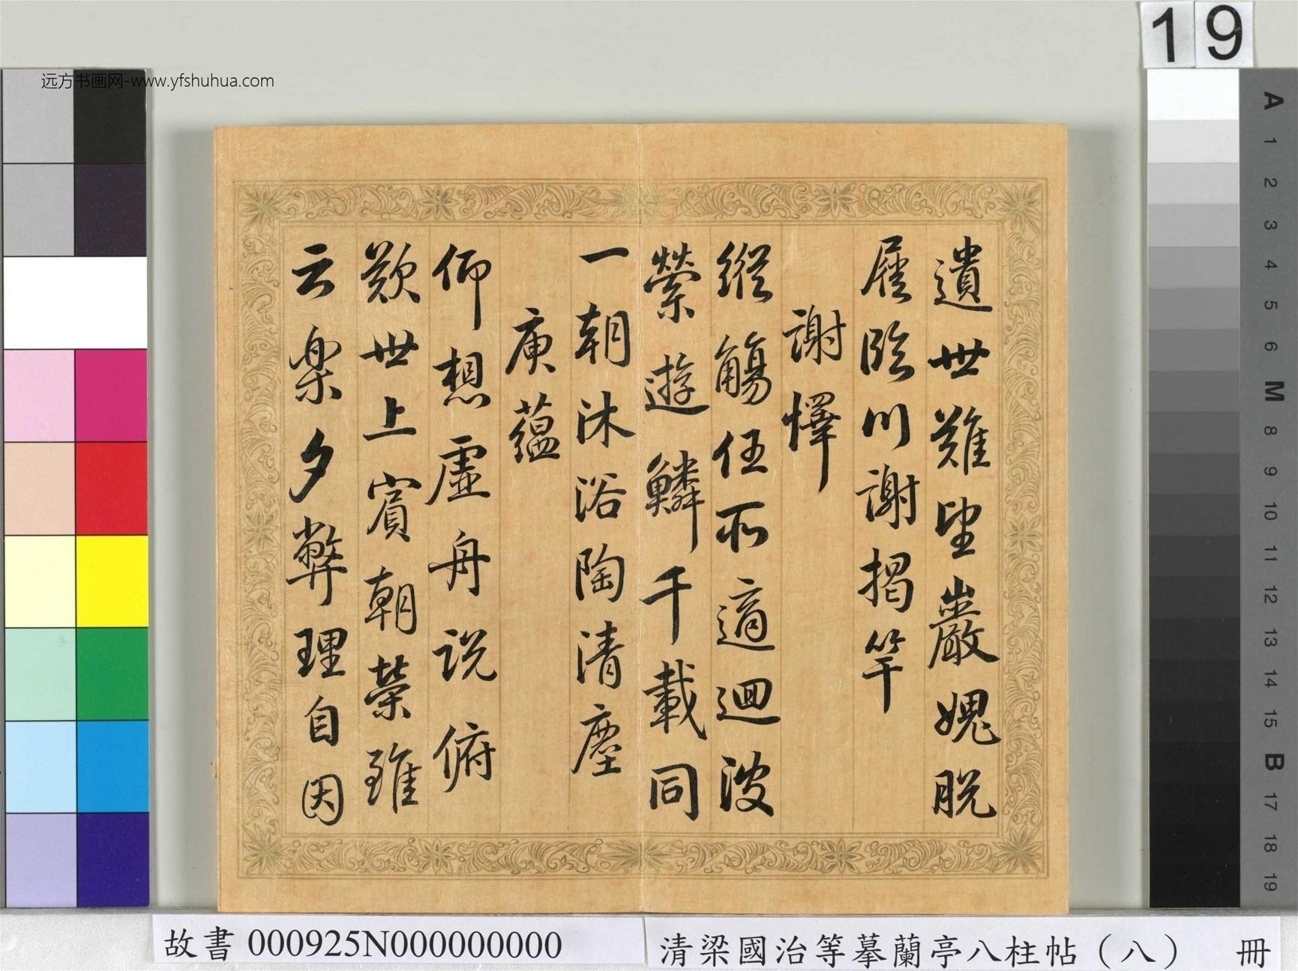 19
远方书画网-www.yfshuhua.com
遺世難望巖媿脫
屣臨川謝揭竿
謝懌
縱觴任所適迴波
縈遊鱗千載同
一朝沐浴陶清塵
庾蘊
仰想虛舟說俯
歎世上賓朝榮雖
云樂夕弊理自因
A
1
2
3
4
5
6
M
8
9
10
11
12
13
14
15
B
17
18
19
故書 000925N000000000
清梁國治等摹蘭亭八柱帖（八） 冊